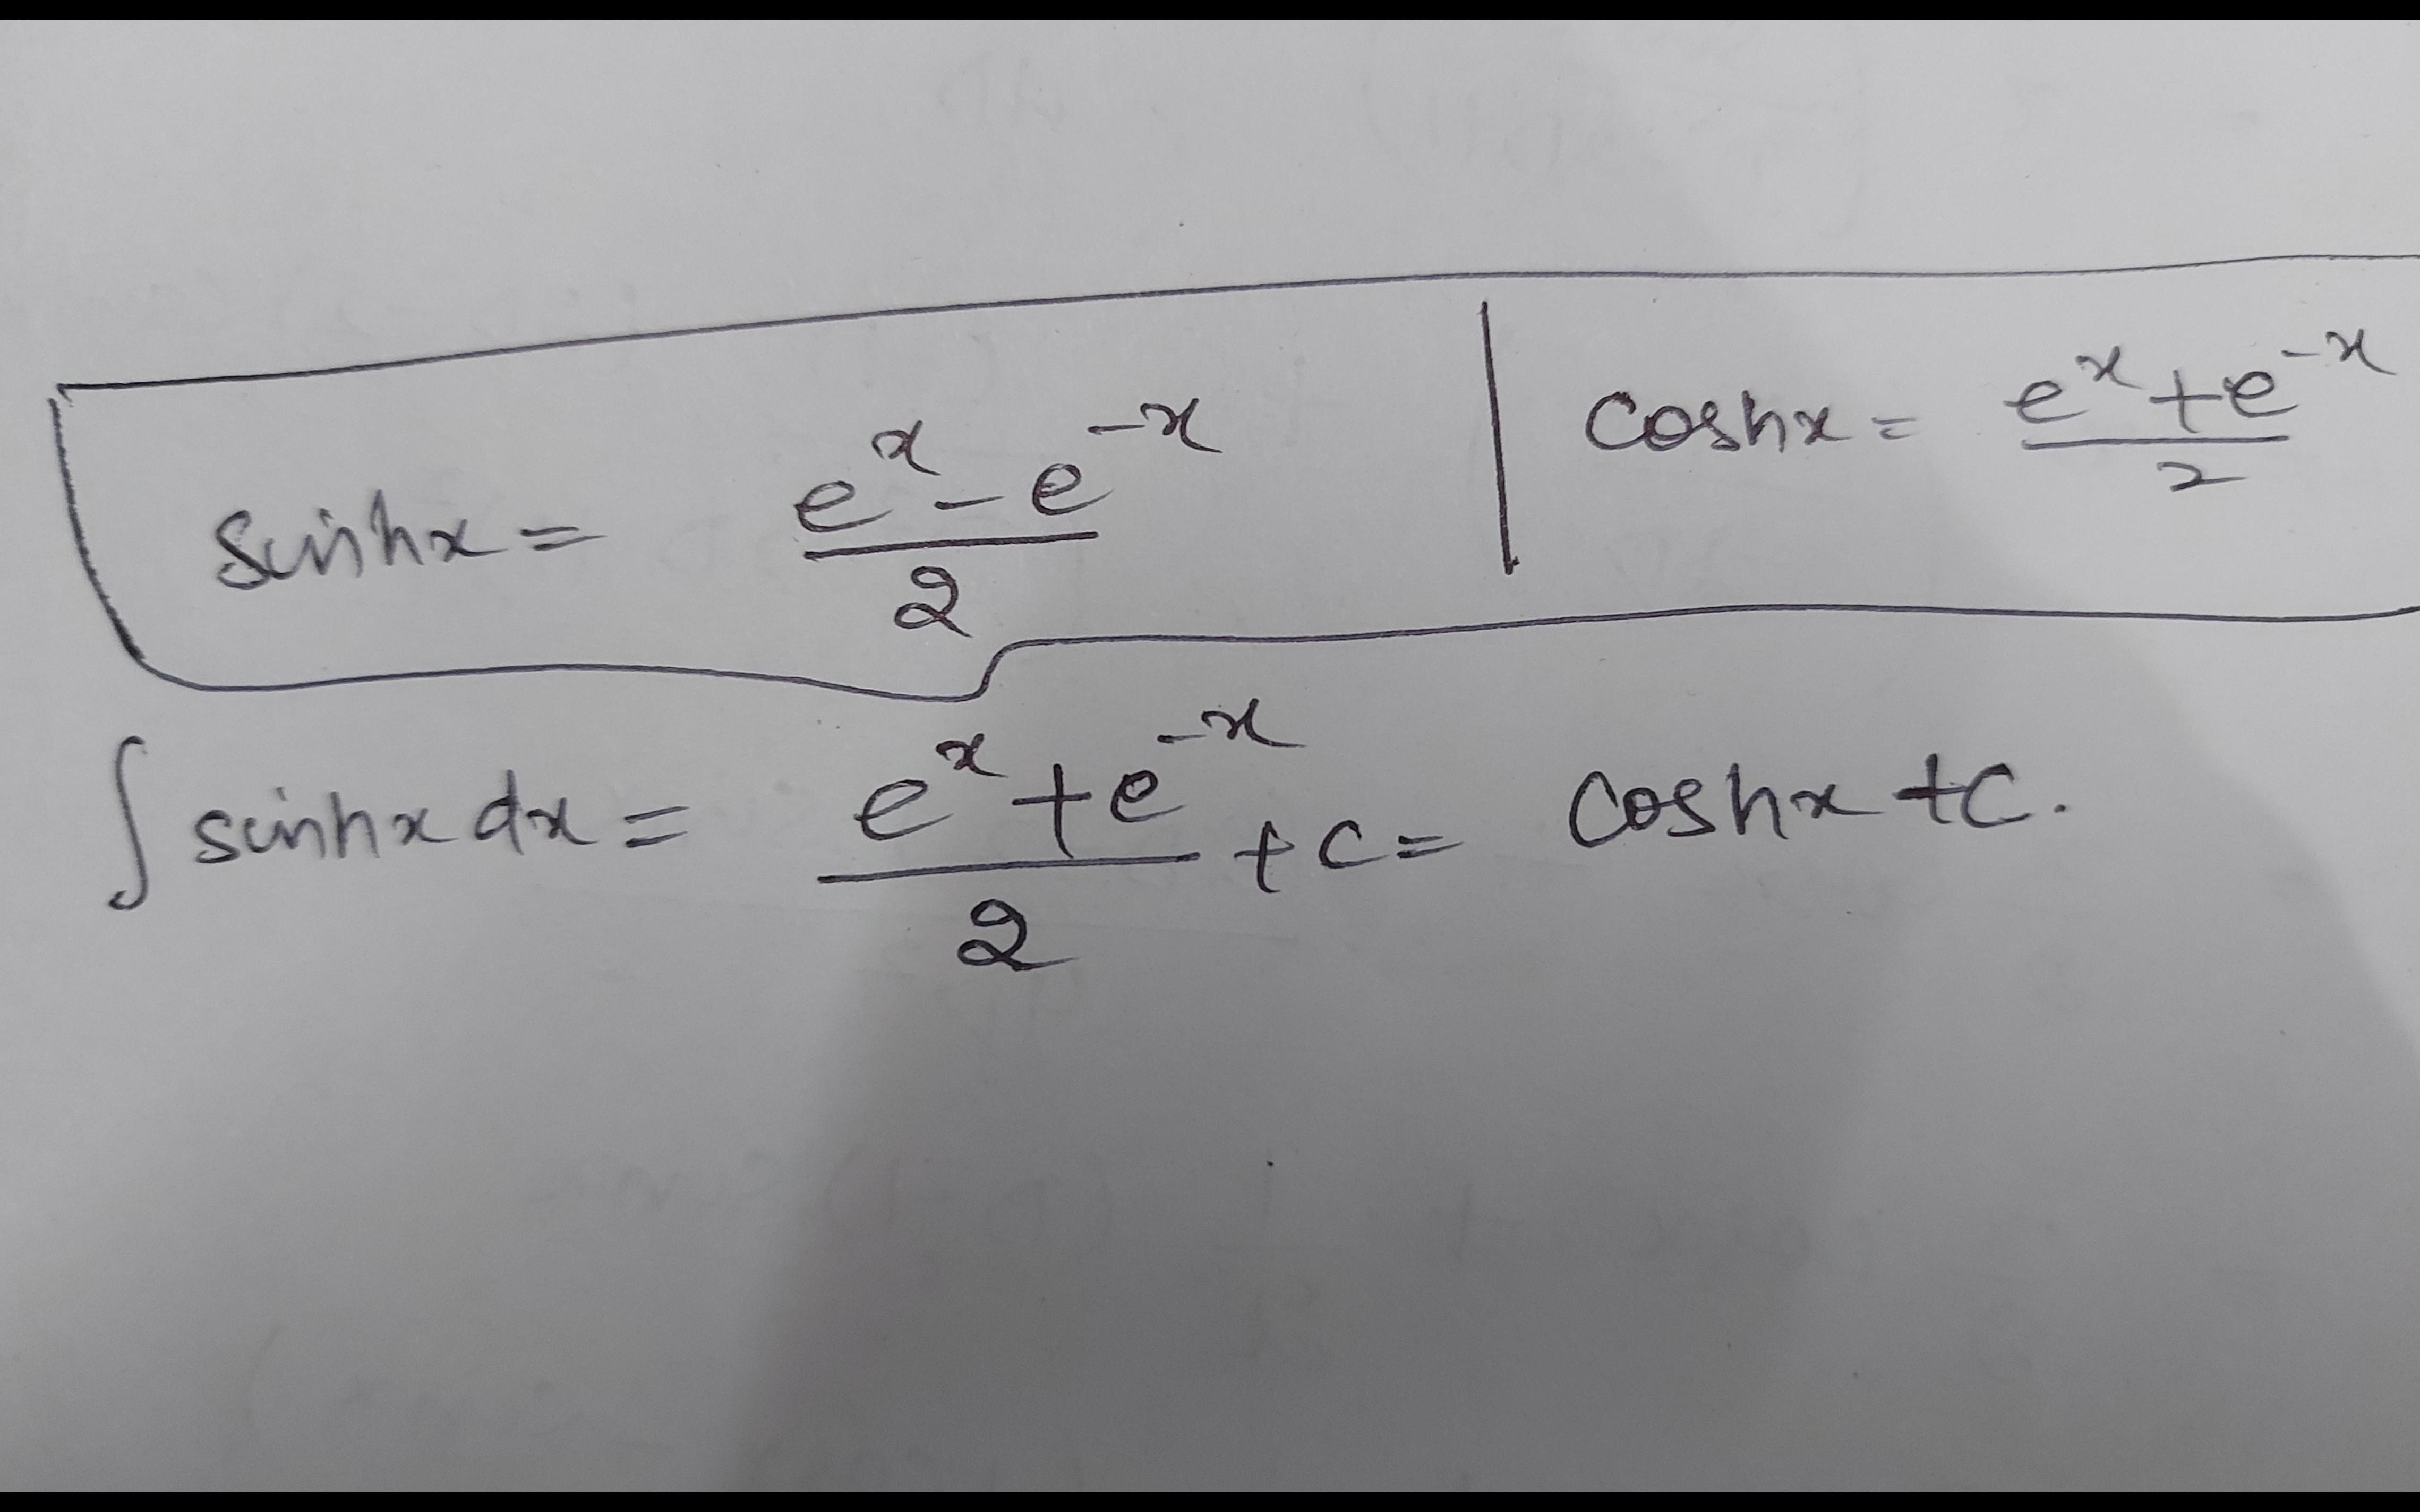 sinhx = (e^x - e^-x)/2 | coshx = (e^x + e^-x)/2
∫ sinhx dx = (e^x + e^-x)/2 + c = coshx + c.